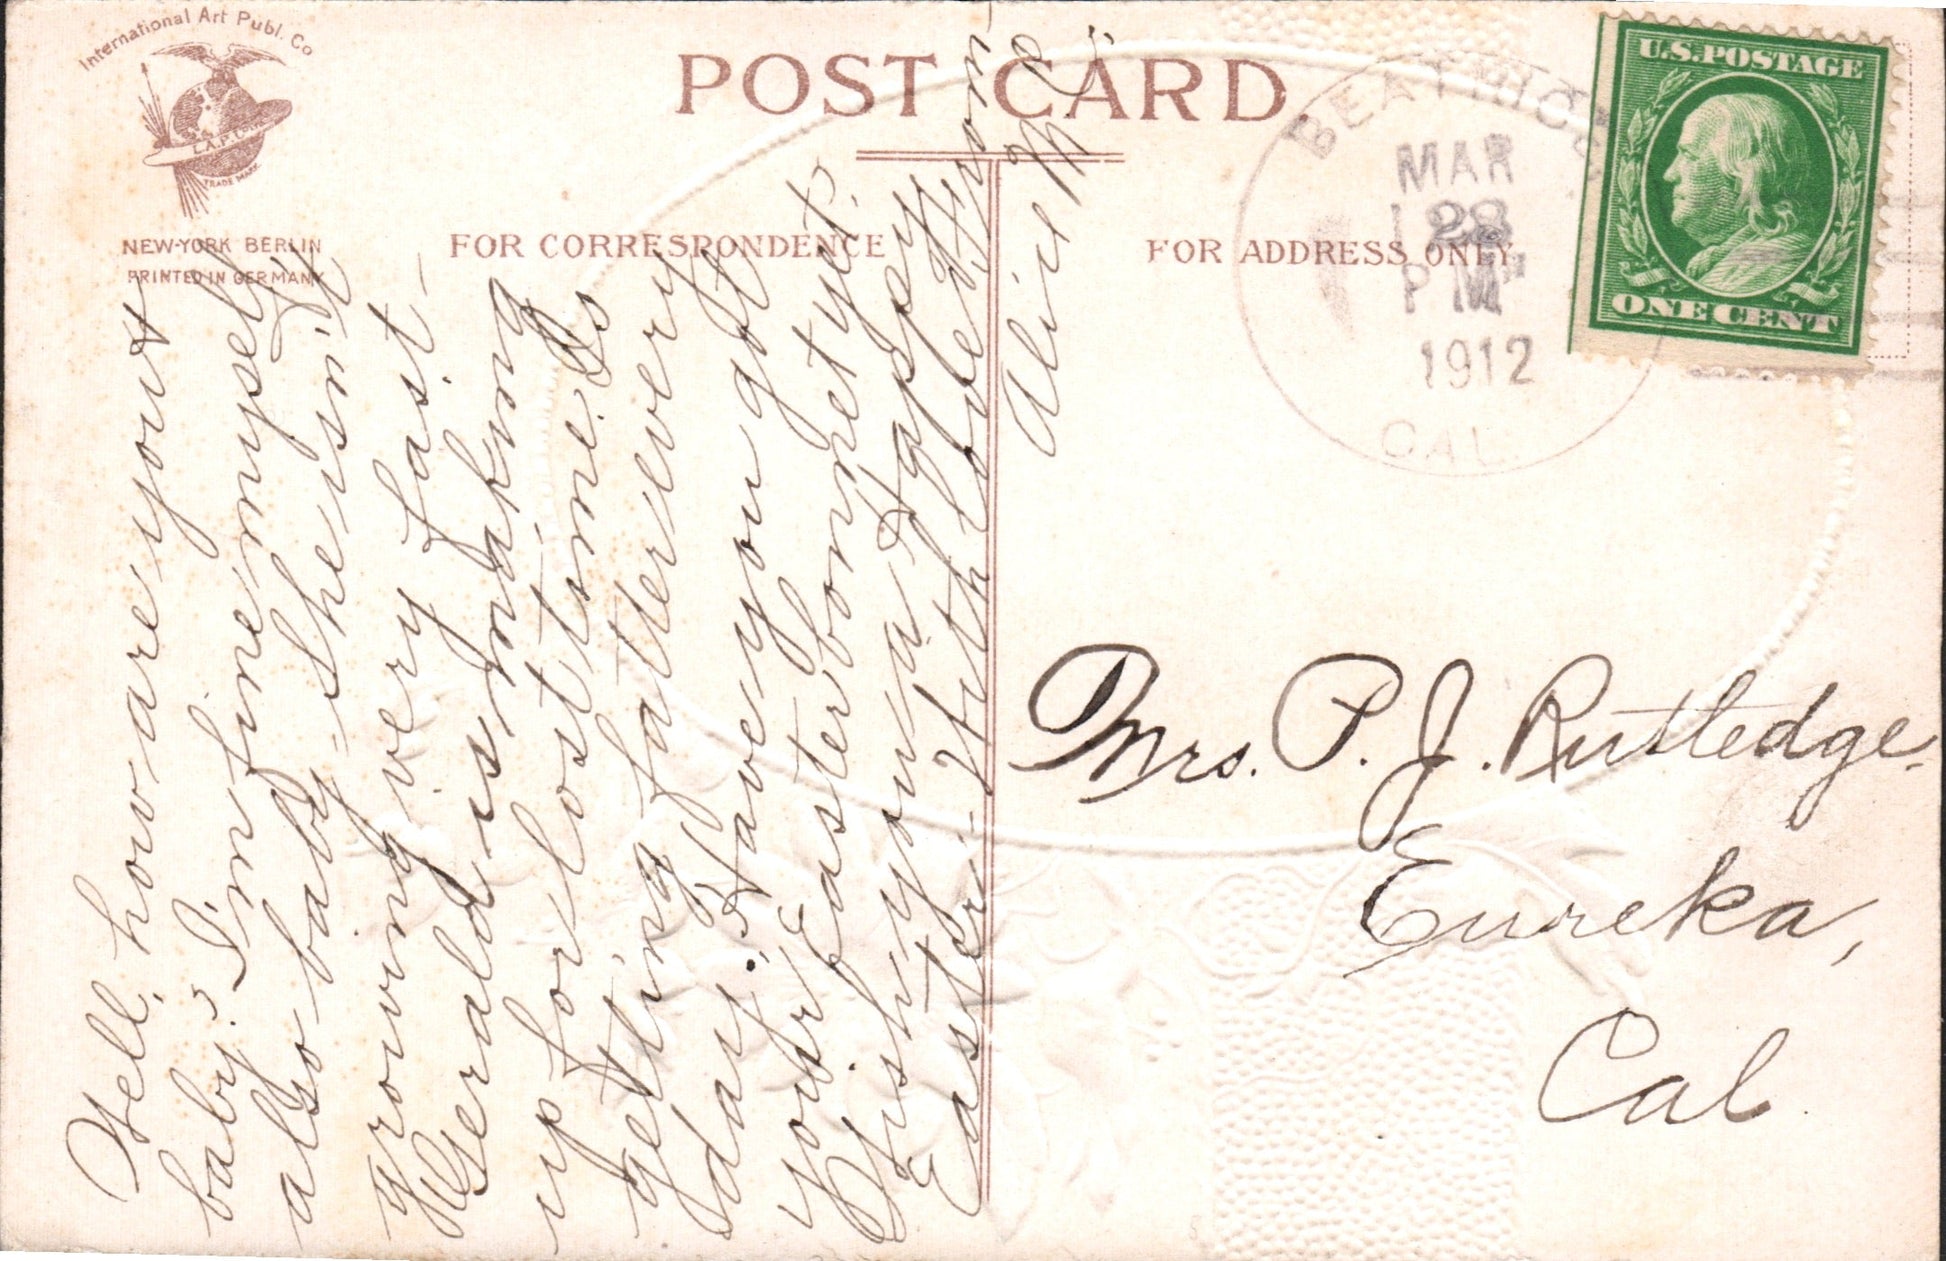 International Art Publ. Co
I.A.P.Co.
TRADE MARK
NEW-YORK BERLIN
PRINTED IN GERMANY
POST CARD
FOR CORRESPONDENCE
FOR ADDRESS ONLY
BEATRICE
MAR
28
PM
1912
CAL.
U.S. POSTAGE
ONE CENT
Well, how are you &
baby? I'm fine myself &
also baby - She isn't
growing very fast -
Gerald is making
up for lost time. Is
getting fatter every
day. Have you got
your Easter bonnet yet.
Wish you a Happy
Easter - With love from
Alice M
Mrs. P. J. Rutledge.
Eureka,
Cal.